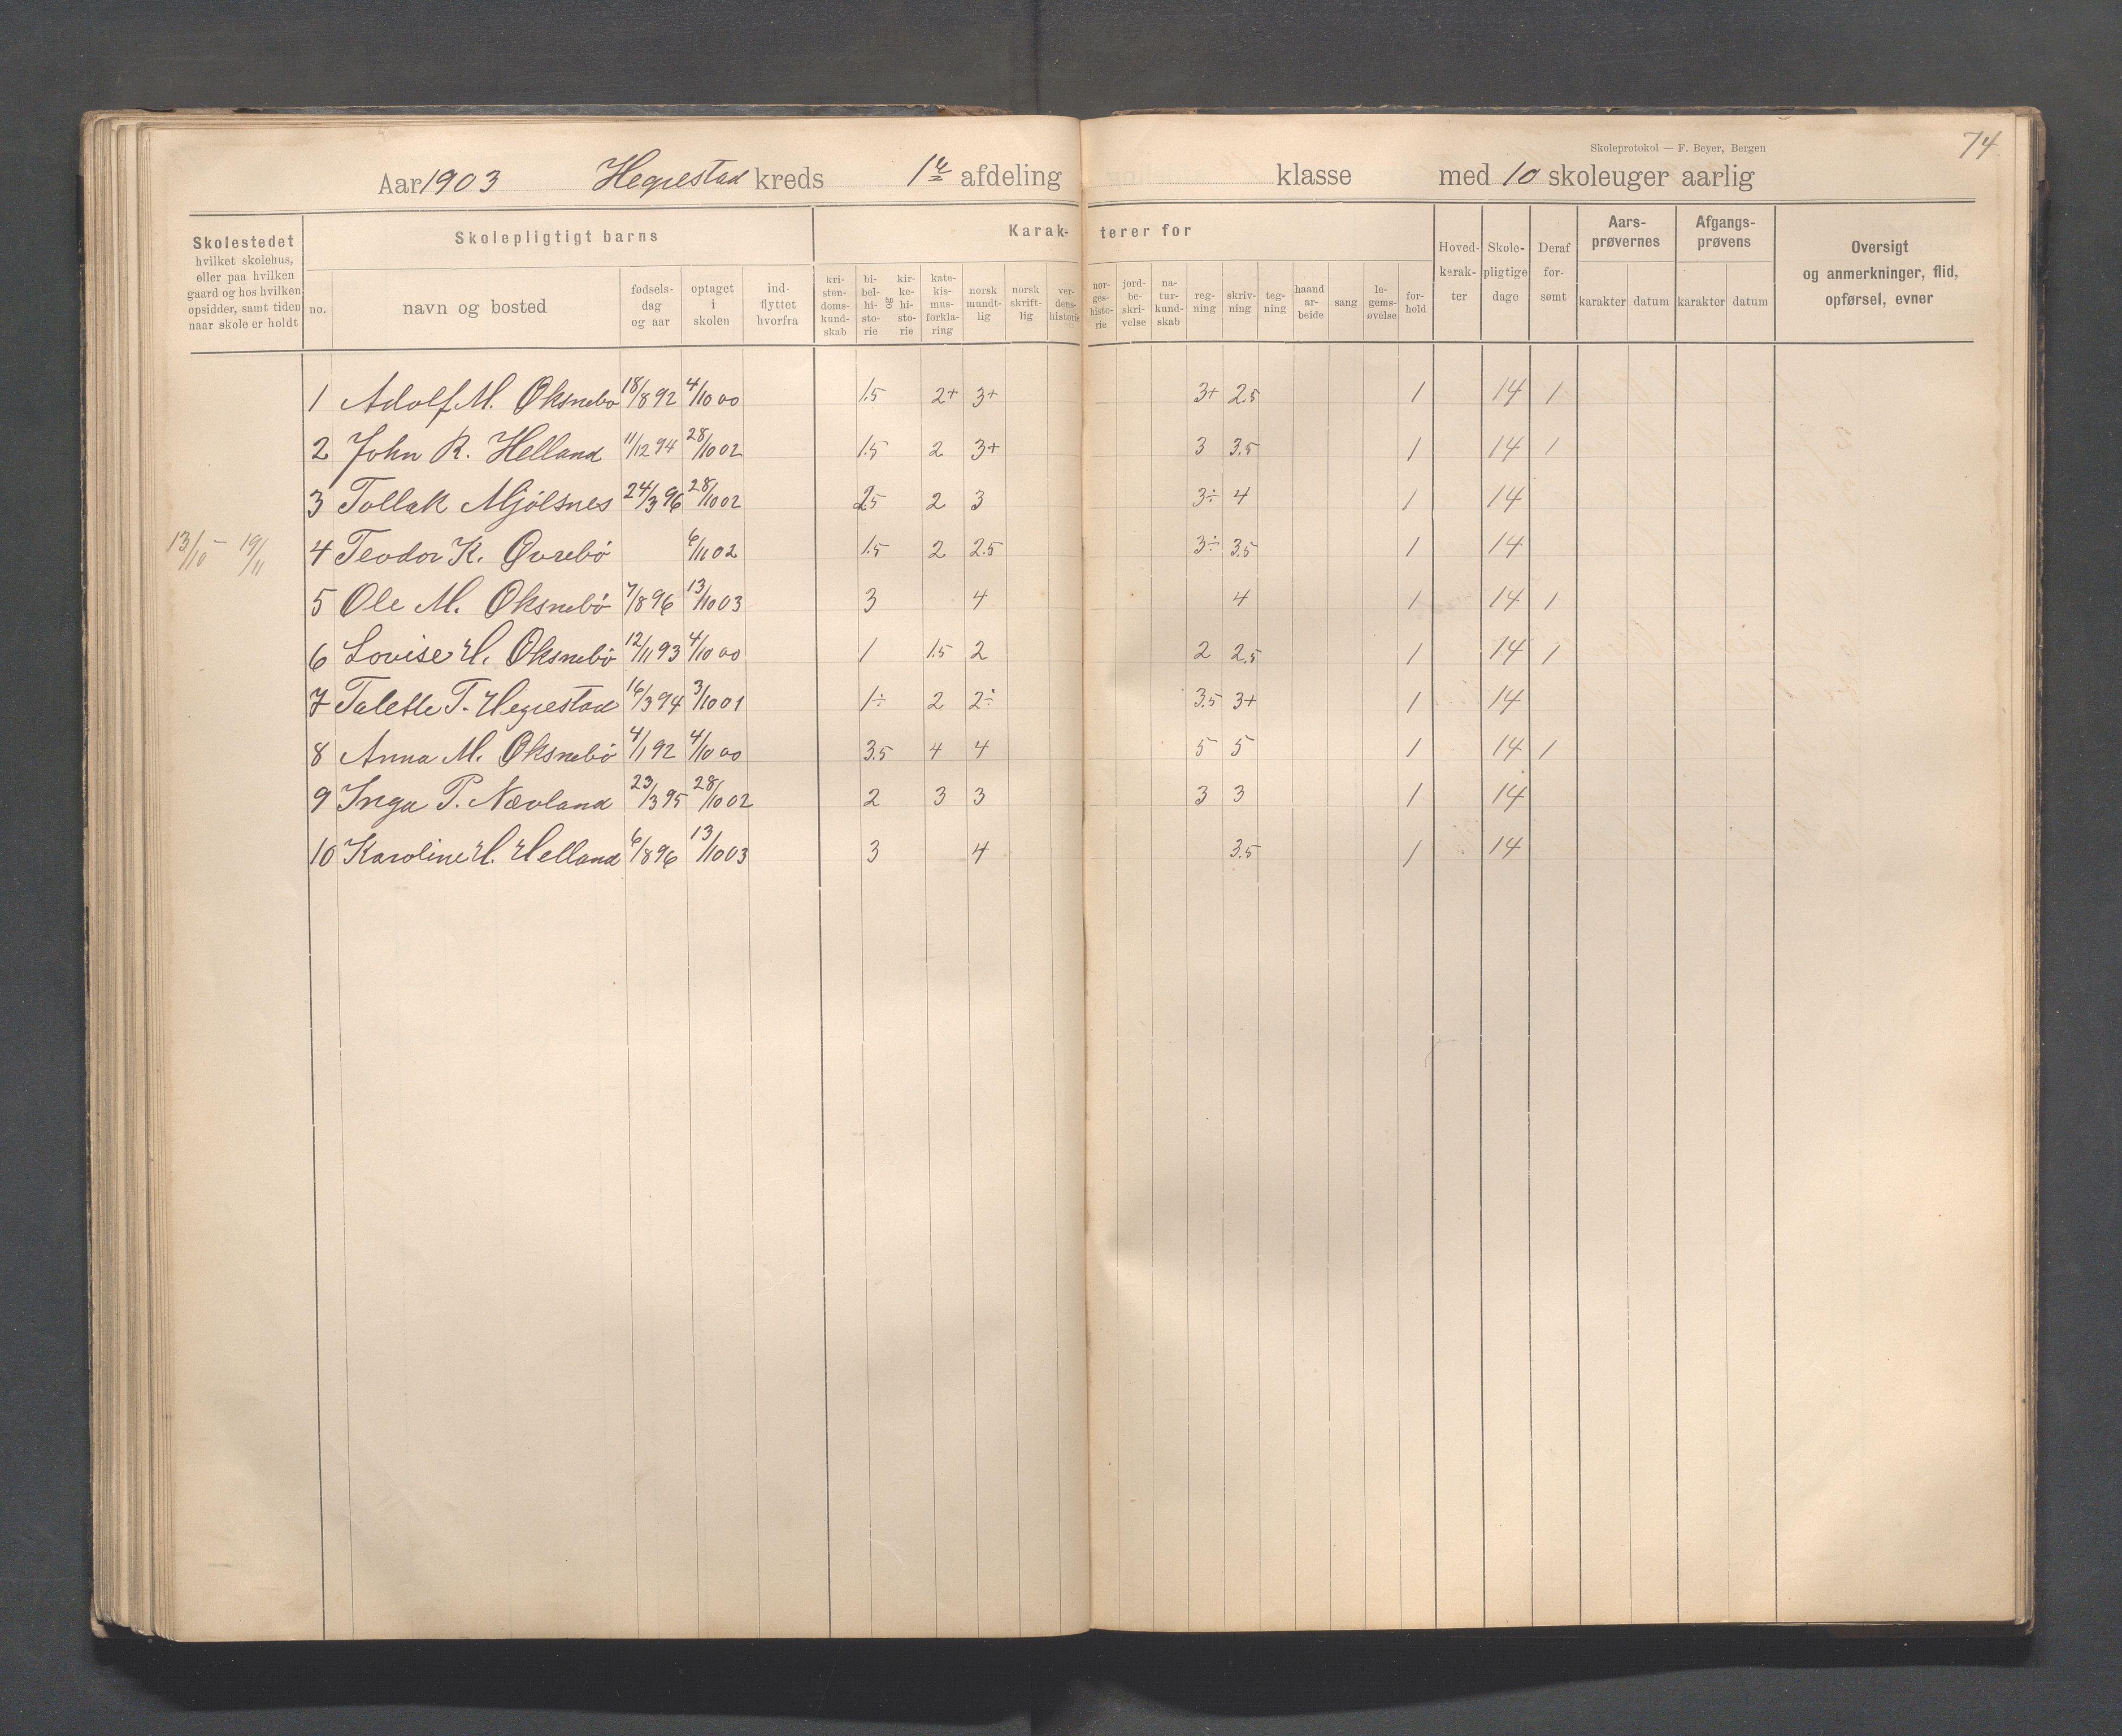 74
Skoleprotokol — F. Beyer, Bergen
Aar 1903 Hegrestad kreds 1ste afdeling klasse med 10 skoleuger aarlig
Skolestedet hvilket skolehus, eller paa hvilken gaard og hos hvilken opsidder, samt tiden naar skole er holdt
Skolepligtigt barns
no. navn og bosted fødsels-dag og aar optaget i skolen ind-flyttet hvorfra
Karak-terer for
kri-sten-doms-kund-skab bi-bel-hi-sto-rie og kir-ke-hi-sto-rie kate-kis-mus-forkla-ring norsk mundt-lig norsk skrift-lig ver-dens-historie nor-ges-histo-rie jord-be-skri-velse na-tur-kund-skab reg-ning skriv-ning teg-ning haand ar-beide sang le-gems-øvelse for-hold
Hoved-karak-ter Skole-pligtige dage Deraf for-sømt
Aars-prøvernes karakter datum
Afgangs-prøvens karakter datum
Oversigt og anmerkninger, flid, opførsel, evner
1 Adolf M. Øksnebø 18/8 92 4/10 00 1.5 2+ 3+ 3+ 2.5 1 14 1
2 John R. Helland 11/12 94 28/10 02 1.5 2 3+ 3 3.5 1 14 1
3 Tollak Mjølsnes 24/3 96 28/10 02 2.5 2 3 3÷ 4 1 14
13/10 – 19/11 4 Teodor K. Øvrebø 6/11 02 1.5 2 2.5 3÷ 3.5 1 14
5 Ole M. Øksnebø 7/8 96 13/10 03 3 4 4 1 14 1
6 Lovise H. Øksnebø 12/11 93 4/10 00 1 1.5 2 2 2.5 1 14 1
7 Talette T. Hegrestad 16/3 94 3/10 01 1÷ 2 2÷ 3.5 3+ 1 14
8 Anna M. Øksnebø 4/1 92 4/10 00 3.5 4 4 5 5 1 14 1
9 Inga P. Nævland 23/3 95 28/10 02 2 3 3 3 3 1 14
10 Karoline H. Helland 6/8 96 13/10 03 3 4 3.5 1 14